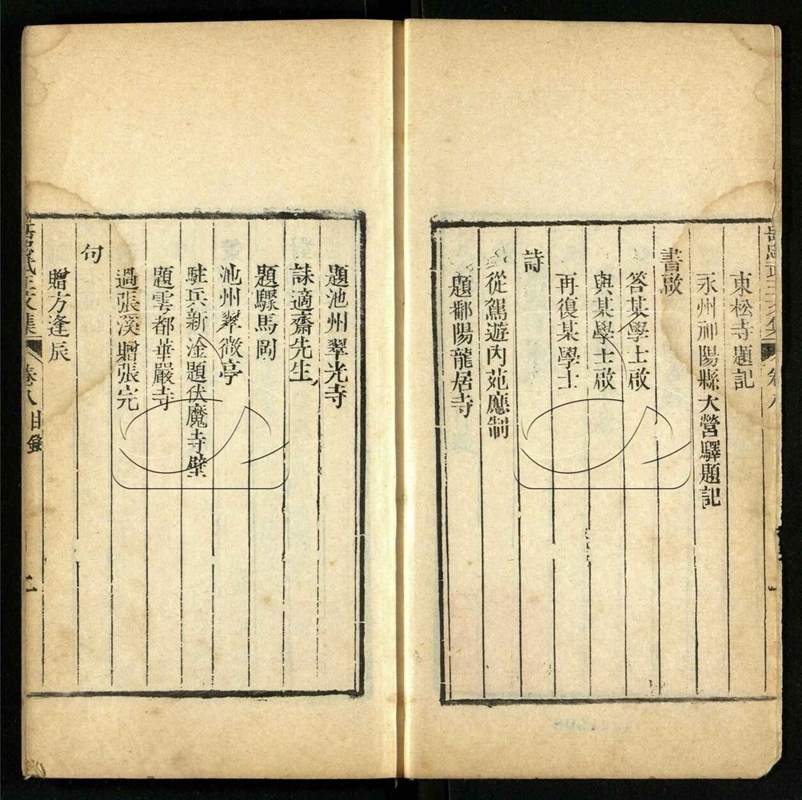 東松寺題記
永州祁陽縣大營驛題記
書啟
答某學士啟
與某學士啟
再復某學士
詩
從駕遊內苑應制
題鄱陽龍居寺
題池州翠光寺
誄適齋先生
題驟馬岡
池州翠微亭
駐兵新淦題伏魔寺壁
題雩都華嚴寺
過張溪贈張完
句
贈方逢辰
岳忠武王文集 卷八目錄 二